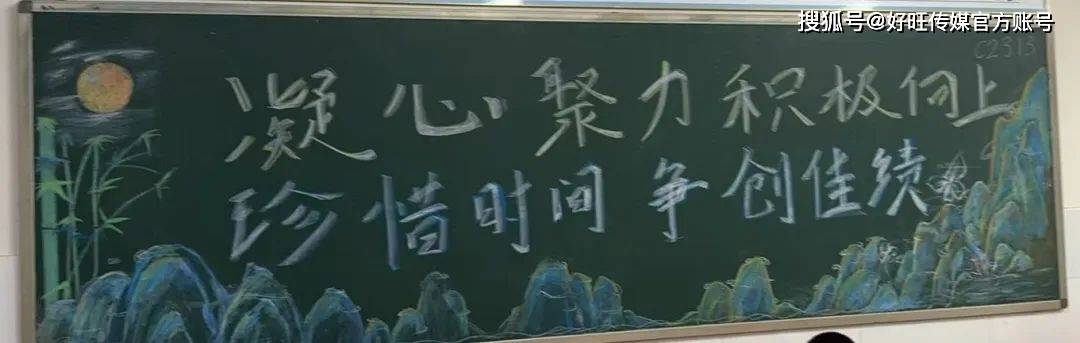 搜狐号@好旺传媒官方账号
C2313
凝心聚力积极向上
珍惜时间争创佳续